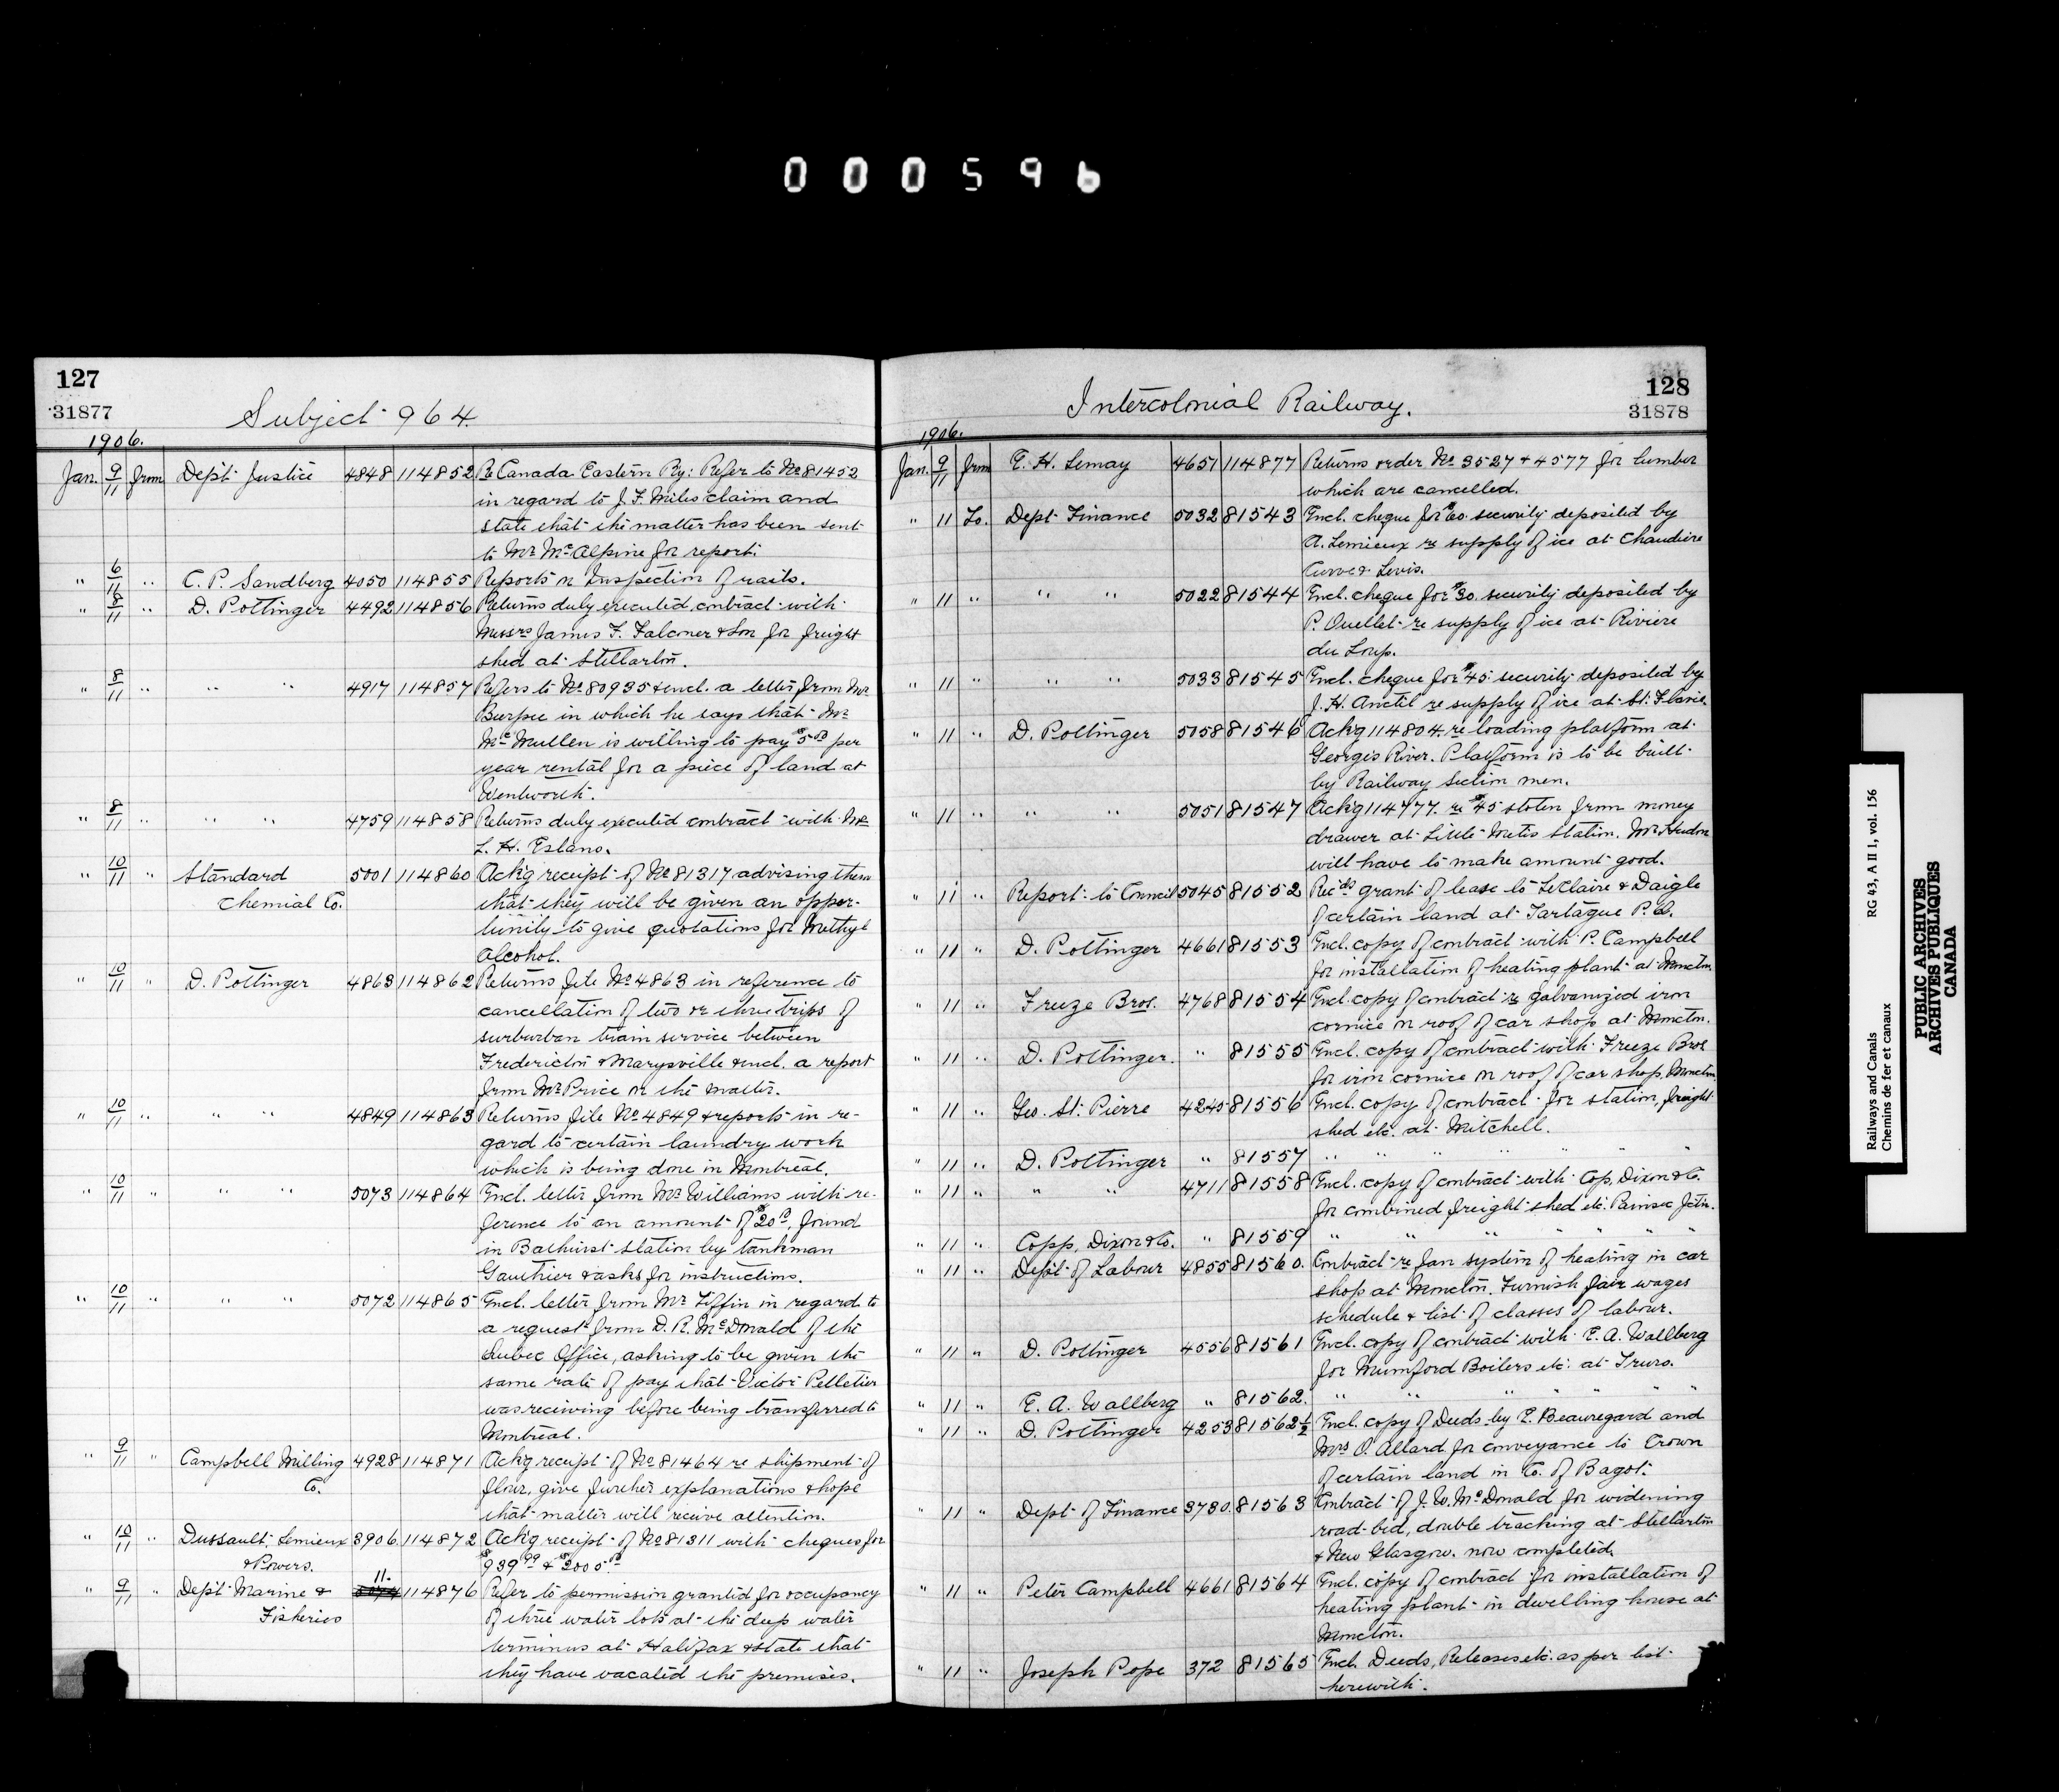 000596
127
31877
Subject 964.
1906.
Jan. 9/11 from Dept. Justice 4848 114852 Re Canada Eastern Ry: Refer to No 81452
in regard to J. F. Miles claim and
state that the matter has been sent
to Mr. McAlpine for report.
" 6/11 " C. P. Sandberg 4050 114855 Reports on Inspection of rails.
" 8/11 " D. Pottinger 4492 114856 Returns duly executed contract with
Messrs James F. Falconer & Son for freight
shed at Stellarton.
" 8/11 " " " 4917 114857 Refers to No 80935 & encl. a letter from Mr
Burpee in which he says that Mr
McMullen is willing to pay $5.00 per
year rental for a piece of land at
Wentworth.
" 8/11 " " " 4759 114858 Returns duly executed contract with Mr
L. H. Estano.
" 10/11 " Standard 5001 114860 Ack'g receipt of No 81317 advising them
Chemial Co. that they will be given an oppor-
tunity to give quotations for Methyl
Alcohol.
" 10/11 " D. Pottinger 4863 114862 Returns file No 4863 in reference to
cancellation of two or three trips of
surburban train service between
Fredericton & Marysville & encl. a report
from Mr. Price on the matter.
" 10/11 " " " 4849 114863 Returns file No 4849 & reports in re-
gard to certain laundry work
which is being done in Montreal.
" 10/11 " " " 5073 114864 Encl. letter from Mr. Williams with re-
ference to an amount of $20.00, found
in Bathurst station by tankman
Gauthier & asks for instructions.
" 10/11 " " " 5072 114865 Encl. letter from Mr Tiffin in regard to
a request from D. R. McDonald of the
Quebec Office, asking to be given the
same rate of pay that Victor Pelletier
was receiving before being transferred to
Montreal.
" 9/11 " Campbell Milling 4928 114871 Ack'g receipt of No 81464 re shipment of
Co. flour, give further explanations & hope
that matter will receive attention.
" 10/11 " Dussault, Lemieux 3906 114872 Ack'g receipt of No 81311 with cheques for
& Powers. $939.99 & $2005.00
" 9/11 " Dept. Marine & 11. 114876 Refer to permission granted for occupancy
Fisheries of three water lots at the deep water
terminus at Halifax & state that
they have vacated the premises.
Intercolonial Railway.
128
31878
1906.
Jan. 9/11 from E. H. Lemay 4651 114877 Returns order No 3527 & 4577 for lumber
which are cancelled.
" 11 To. Dept Finance 5032 81543 Encl. cheque for $60. security deposited by
A. Lemieux re supply of ice at Chaudiere
Curve & Levis.
" 11 " " " 5022 81544 Encl. cheque for $30. security deposited by
P. Ouellet re supply of ice at Riviere
du Loup.
" 11 " " " 5033 81545 Encl. cheque for $45. security deposited by
J. H. Anctil re supply of ice at St. Flavie
" 11 " D. Pottinger 5058 81546 Ack'g 114804. re loading platform at
Georges River. Platform is to be built
by Railway section men.
" 11 " " " 5051 81547 Ack'g 114777. re $45 stolen from money
drawer at Little Metis station. Mr. Hudon
will have to make amount good.
" 11 " Report to Council 5045 81552 Rec'ds grant of lease to LeClaire & Daigle
of certain land at Tartague P.Q.
" 11 " D. Pottinger 4661 81553 Encl. copy of contract with P. Campbell
for installation of heating plant at Moncton.
" 11 " Freeze Bros. 4768 81554 Encl. copy of contract re galvanized iron
cornice on roof of car shop at Moncton.
" 11 " D. Pottinger. " 81555 Encl. copy of contract with Freeze Bros
for iron cornice on roof of car shop, Moncton.
" 11 " Geo. St. Pierre 4245 81556 Encl. copy of contract for station, freight
shed etc. at Mitchell.
" 11 " D. Pottinger " 81557 " " " " " " "
" 11 " " " 4711 81558 Encl. copy of contract with Cop, Dixon & Co.
for combined freight shed etc. Painsec Jctn.
" 11 " Copp, Dixon & Co. " 81559 " " " " " "
" 11 " Dept. of Labour 4855 81560. Contract re fan system of heating in car
shop at Moncton. Furnish fair wages
schedule & list of classes of labour.
" 11 " D. Pottinger 4556 81561 Encl. copy of contract with E. A. Wallberg
for Mumford Boilers etc. at Truro.
" 11 " E. A. Wallberg " 81562. " " " " " " "
" 11 " D. Pottinger 4253 81562½ Encl. copy of Deeds by E. Beauregard and
Mrs O. Allard for conveyance to Crown
of certain land in Co. of Bagot.
" 11 " Dept of Finance 3730. 81563 Contract of J. W. McDonald for widening
road-bed, double tracking at Stellarton
& New Glasgow. now completed.
" 11 " Peter Campbell 4661 81564 Encl. copy of contract for installation of
heating plant in dwelling house at
Moncton.
" 11 " Joseph Pope 372 81565 Encl. Deeds, Releases etc. as per list
herewith.
Railways and Canals RG 43, A II 1, vol. 156
Chemins de fer et canaux
PUBLIC ARCHIVES
ARCHIVES PUBLIQUES
CANADA